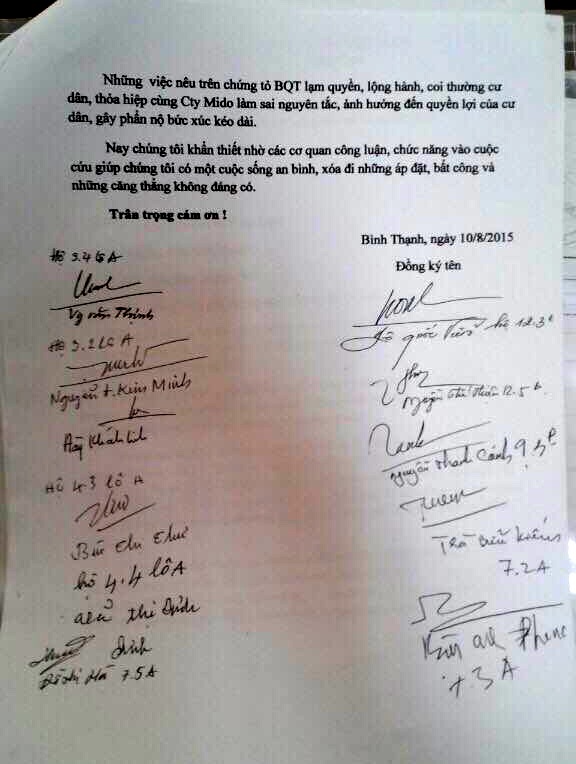 Những việc nêu trên chứng tỏ BQT lạm quyền, lộng hành, coi thường cư
dân, thỏa hiệp cùng Cty Mido làm sai nguyên tắc, ảnh hưởng đến quyền lợi của cư
dân, gây phẫn nộ bức xúc kéo dài.
Nay chúng tôi khẩn thiết nhờ các cơ quan công luận, chức năng vào cuộc
cứu giúp chúng tôi có một cuộc sống an bình, xóa đi những áp đặt, bất công và
những căng thẳng không đáng có.
Trân trọng cám ơn !
Bình Thạnh, ngày 10/8/2015
Đồng ký tên
Hộ
Hộ
Nguyễn t. Kim Minh
Hộ 4.3 lô A
hộ 4.4 lô A
thị Đính
Đính
7.5A
quốc hộ 12.3
12.5
Nguyễn thanh Cảnh 9.3
7.2A